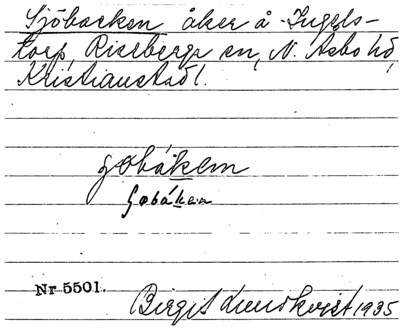 Sjöbacken åker å Ingels-
torp, Riseberga sn, N. Åsbo hd,
Kristianstad l.
gobákem
gobáken
Nr 5501.
Birgit Lundkvist 1935